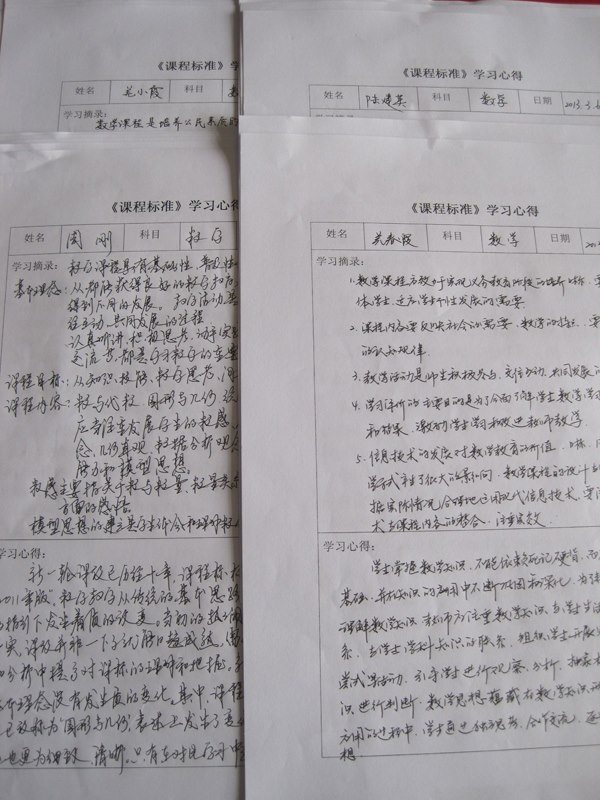 《课程标准》学习心
姓名 毛小霞 科目
学习摘录:
数学课程是培养公民素质的
《课程标准》学习心得
姓名 陆建英 科目 数学 日期 2013.3.6
学习摘录:
《课程标准》学习心得
姓名 周刚 科目 数学
学习摘录: 数学课程具有基础性 普及性
基本理念: 从都能获得良好的数学教育
得到不同的发展。 教学活动是
往互动、共同发展的过程
认真听讲、积极思考、动手实践
交流等,都是学习数学的重要
课程目标: 从知识技能、数学思考、
课程内容: 数与代数 图形与几何 统
应当注重发展学生的数感
念、几何直观、数据分析观念
能力和模型思想。
数感主要指关于数与数量、数量关系
方面的感悟
模型思想的建立是学生体会和理解数
学习心得:
新一轮课改已历经十年,课程标
2011年版,
指引下发生着质的改变。当初的
实,课改并非一下子
和分析中提
本理念没有发生质的变化。其中,课程
已被称为“图形与几何”,表述上发生了变
也更为细致、清晰。
《课程标准》学习心得
姓名 吴春霞 科目 数学 日期 20
学习摘录:
1. 数学课程应致力于实现义务教育阶段的培养目标,要
体学生,适应学生个性发展的需要
2. 课程内容要反映社会的需要、数学的特点,要
的认知规律。
3. 教学活动是师生积极参与、交往互动、共同发展
4. 学习评价的主要目的是为了全面了解学生数学学习
和结果,激励学生学习和改进教师教学。
5. 信息技术的发展对数学教育的价值、目标、内
学方式产生了很大的影响,数学课程的设计与
据实际情况,合理地运用现代信息技术,要注
术与课程内容的整合,注重实效。
学习心得:
学生掌握数学知识,不能依赖死记硬背,而
基础,并在知识的应用中不断巩固和深化,为
理解数学知识,教师应注重数学知识与学生生活
系、与学生学科知识的联系,组织学生开展
尝试等活动,引导学生进行观察、分析,抽象
识进行判断。数学思想蕴藏在数学知识的
应用的过程中,学生通过独立思考、合作交流、逐
想